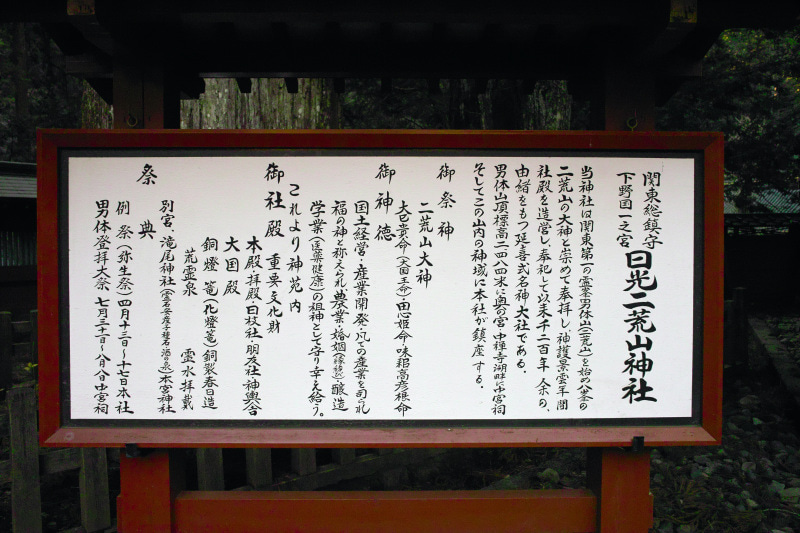 関東総鎮守
下野国一之宮
日光二荒山神社
当神社は関東第一の霊峯男体山(二荒山)を始め八峯の
二荒山の大神と崇めて奉拝し、神護景雲年間
社殿を造営し、奉祀して以来千二百年余の、
由緒をもつ延喜式名神大社である。
男体山頂標高二四八四米に奥の宮・中禅寺湖畔に中宮祠
そしてこの山内の神域に本社が鎮座する。
御祭神
二荒山大神
大己貴命(大国主命)・田心姫命・味耜高彦根命
御神徳
国土経営・産業開発・凡ての産業を司られ
福の神と称えられ農業・婚姻(縁結)・醸造
学業(医薬健康)の祖神として守り幸を給う。
これより神苑内
御社殿 重要文化財
本殿・拝殿・日枝社・朋友社・神輿舎
大国殿
銅燈篭(化燈篭)銅製春日造
荒霊泉 霊水拝戴
別宮、滝尾神社 本宮神社
祭典
例祭(弥生祭)四月十三日〜十七日本社
男体登拝大祭 七月三十一日〜八月八日中宮祠